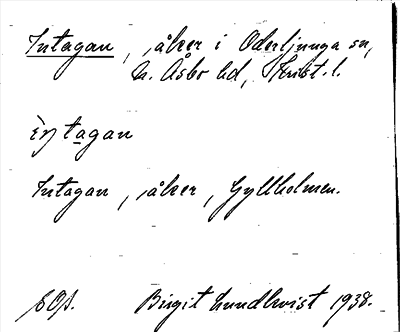 Intagan, åker i Oderljunga sn,
N. Åsbo hd, Krist. l.
Intagan, åker, Gyllholmen.
Birgit Lundkvist 1938.